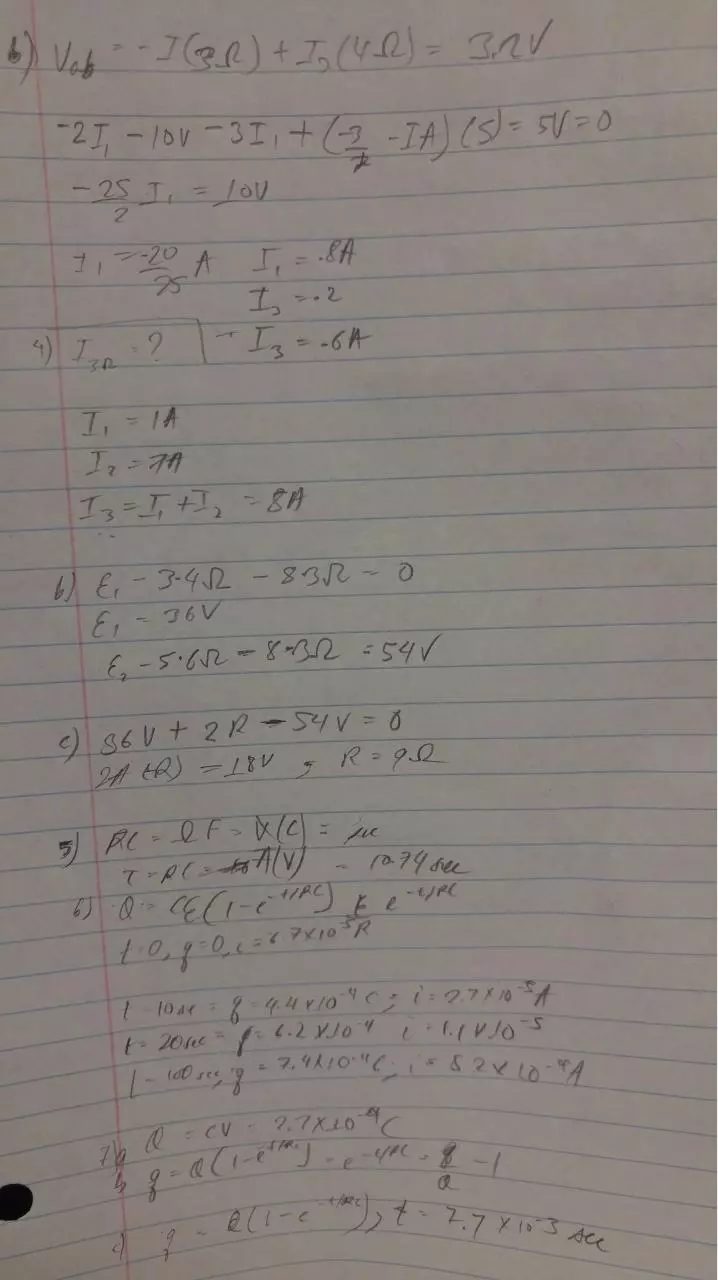 b) Vab = -I(3Ω) + I3(4Ω) = 3.2V
-2I1 - 10V - 3I1 + (-3/2 - IA)(5) = 5V = 0
-25/2 I1 = 10V
I1 = -20/25 A I1 = .8A
I3 = .2
4) I3Ω = ? - I3 = .6A
I1 = 1A
I2 = 7A
I3 = I1 + I2 = 8A
b) ε1 - 3·4Ω - 8·3Ω = 0
ε1 = 36V
ε2 - 5·6Ω - 8·3Ω = 54V
c) 36V + 2R - 54V = 0
2A (R) = 18V , R = 9Ω
5) RC = ΩF =
τ = RC = A(V) = 10.74 sec
6) Q = Cε(1-e^-t/RC) e^-t/RC
t=0, q=0, i=6.7x10^-5 A
t = 10 sec = q = 4.4x10^-4 C; i = 2.7x10^-5 A
t = 20 sec = q = 6.2x10^-4 i = 1.1x10^-5
t = 100 sec; q = 7.4x10^-4 C; i = 8.2x10^-9 A
7) a Q = CV = 7.7x10^-4 C
b q = Q(1-e^-t/RC) = e^-t/RC = q/Q - 1
c) q = Q(1-e^-t/RC), t = 7.7x10^-3 sec